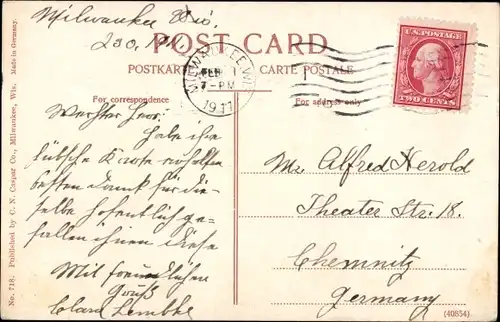 Milwaukee Wis.
POST CARD
POSTKARTE CARTE POSTALE
For correspondence For address only
MILWAUKEE, WIS.
FEB
7-PM
1911
U.S. POSTAGE
TWO CENTS
Werther Herr:
Habe ihre
hübsche Karte erhalten
besten Dank für die-
selbe hoffentlich ge-
fallen ihnen diese
Mit freundlichen
Gruß
Clara Lembke
Mr. Alfred Herold
Theater Str. 18.
Chemnitz
Germany
(40854)
No. 718. Published by C. N. Caspar Co., Milwaukee, Wis. Made in Germany.